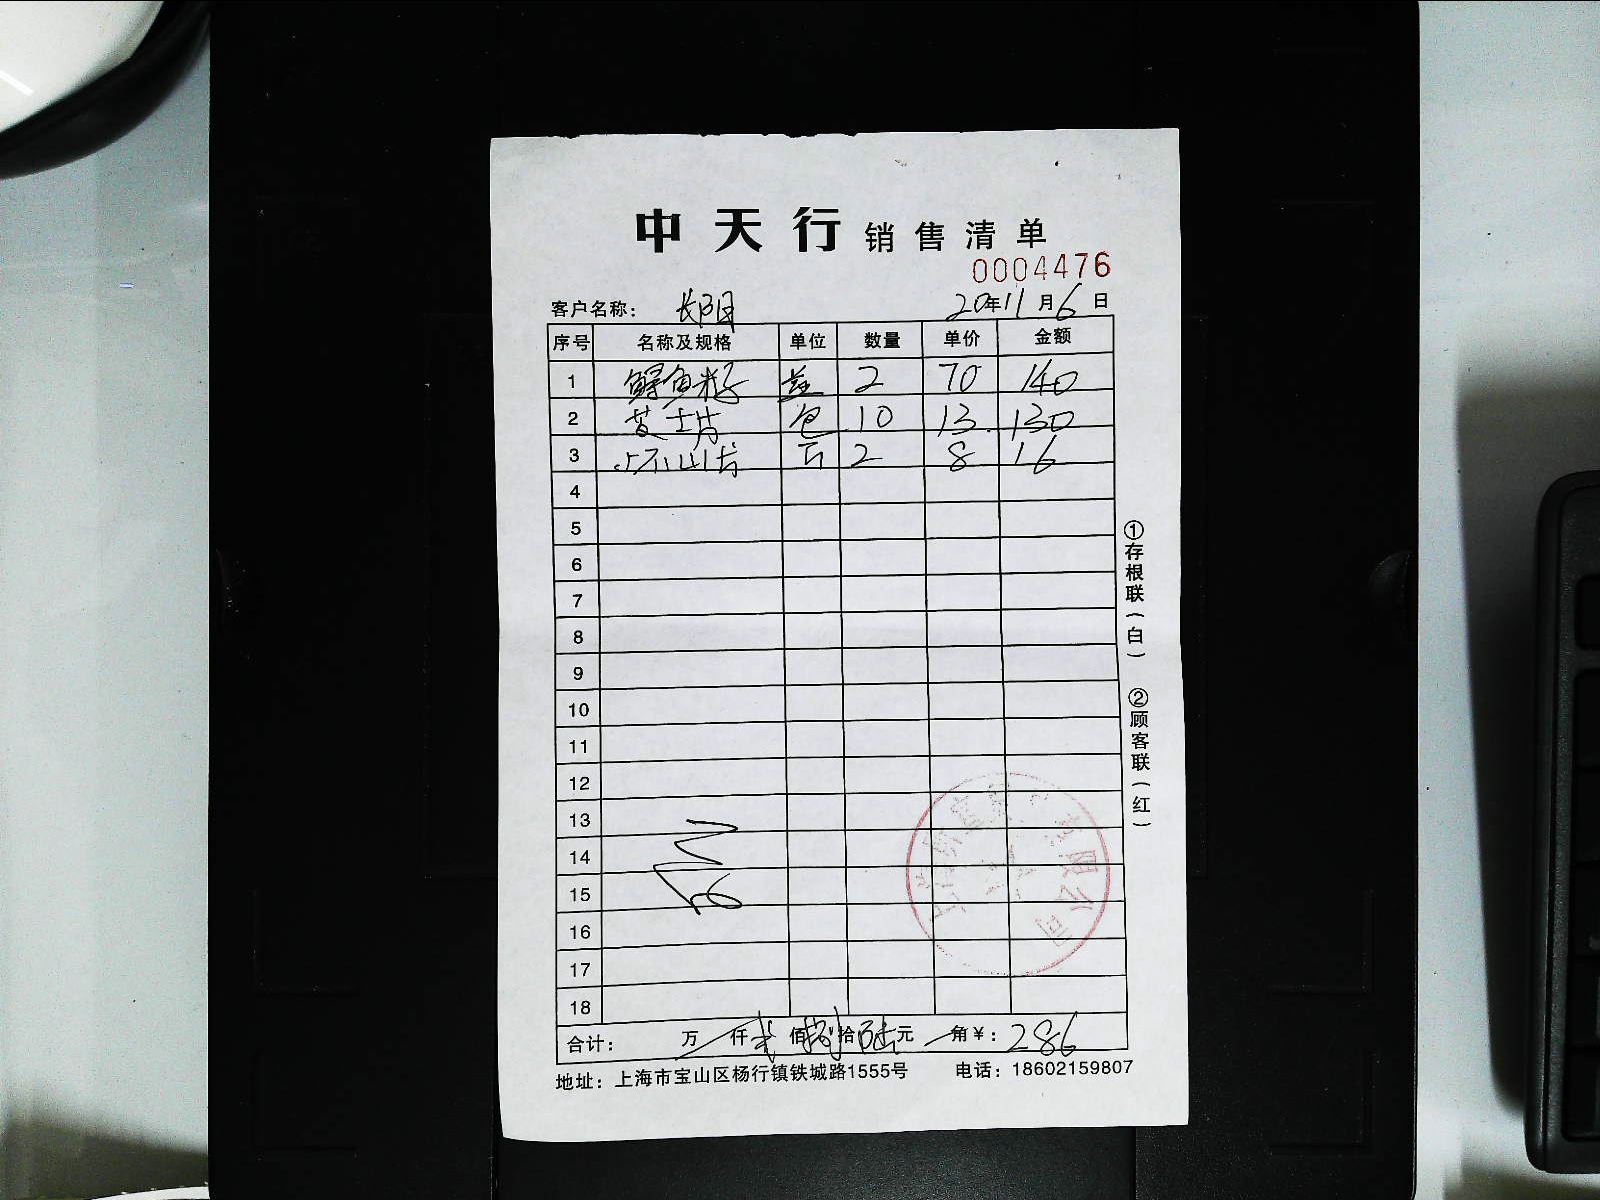 中天行 销售清单
0004476
客户名称： 长阳 20年11月6日
序号 名称及规格 单位 数量 单价 金额
1 鳕鱼籽 盒 2 70 140
2 芝士片 包 10 13 130
3 2 8 16
4
5
6
7
8
9
10
11
12
13
14
15
16
17
18
合计： 万 仟 贰 佰 捌 拾 陆 元 角 ￥： 286
地址：上海市宝山区杨行镇铁城路1555号 电话：18602159807
①存根联（白） ②顾客联（红）
有限公司